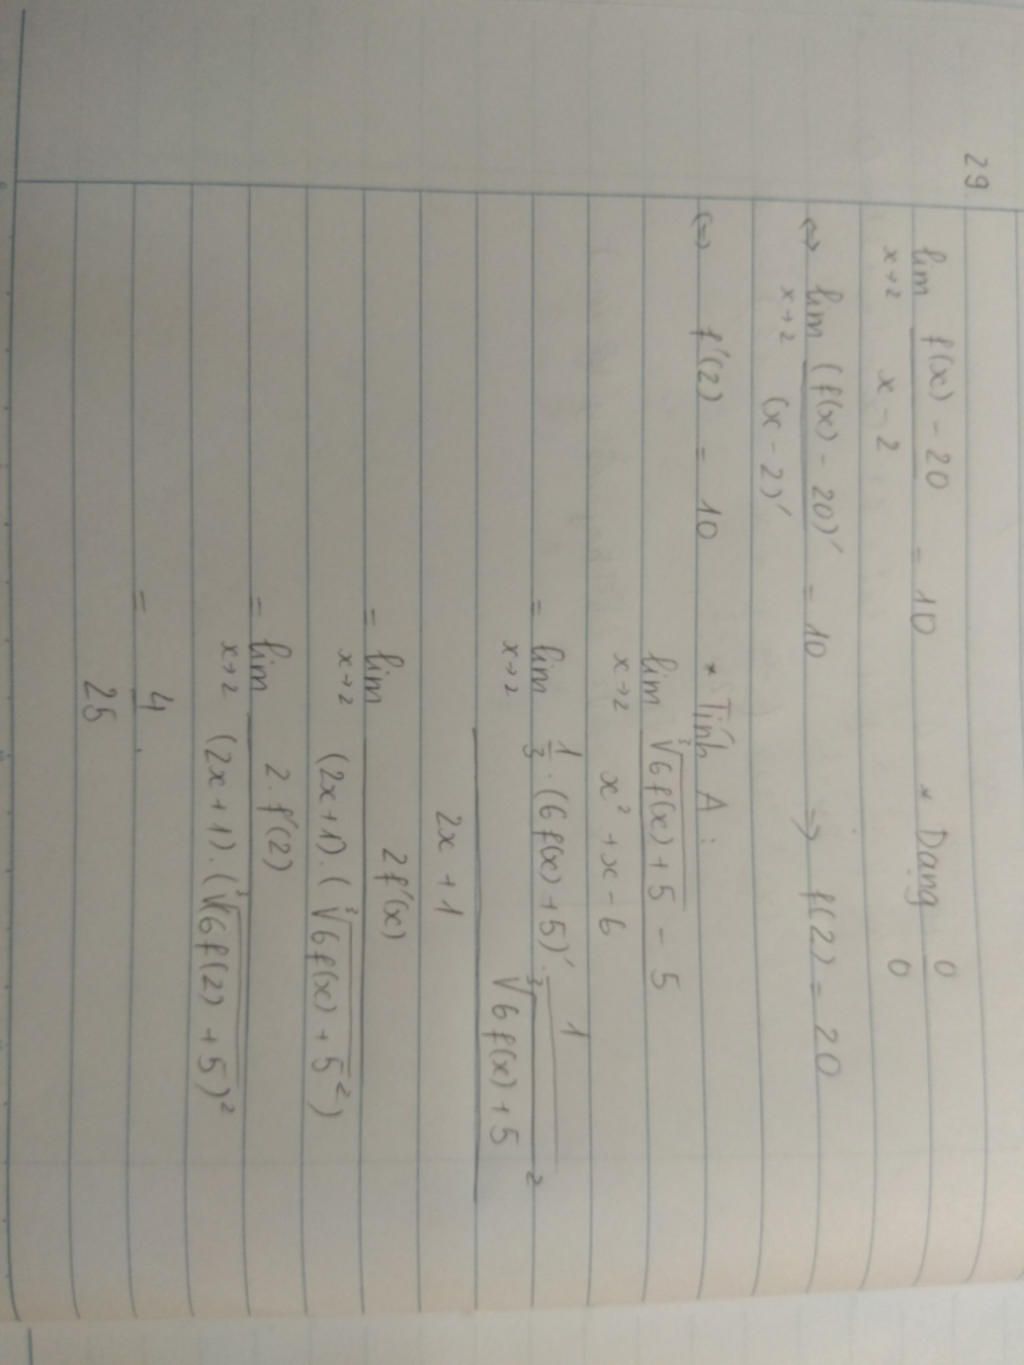 29
lim x→2 (f(x) - 20)/(x - 2) = 10 * Dạng 0/0
⇔ lim x→2 (f(x) - 20)'/(x - 2)' = 10 ⇒ f(2) = 20
⇔ f'(2) = 10 * Tính A :
lim x→2 (∛(6f(x) + 5) - 5)/(x² + x - 6)
= lim x→2 (1/3 . (6f(x) + 5)' . 1/∛(6f(x) + 5)²)/(2x + 1)
= lim x→2 2f'(x)/((2x+1).(∛(6f(x) + 5²)))
= lim x→2 2.f'(2)/((2x+1).(∛(6f(2) + 5))²)
= 4/25 .